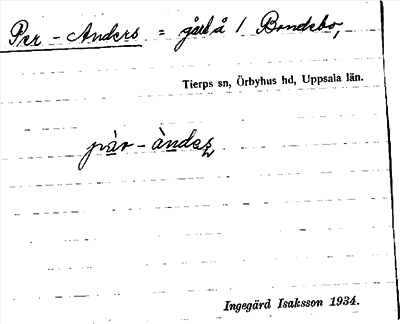 Per-Anders = gård å / Bondebo,
Tierps sn, Örbyhus hd, Uppsala län.
pär-àndeʂ
Ingegärd Isaksson 1934.